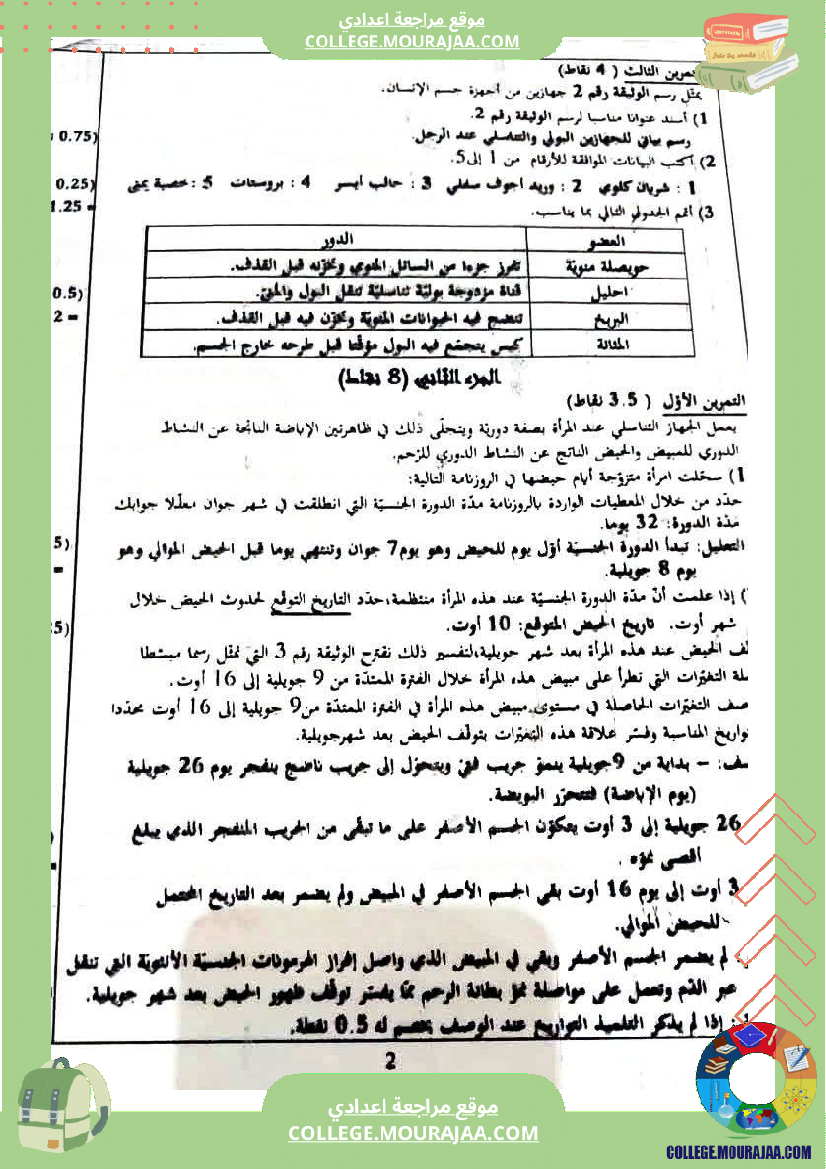 موقع مراجعة اعدادي
COLLEGE.MOURAJAA.COM
تمرين الثالث ( 4 نقاط)
يمثّل رسم الوثيقة رقم 2 جهازين من أجهزة جسم الإنسان.
1) أسند عنوانا مناسبا لرسم الوثيقة رقم 2.
رسم بياني للجهازين البولي والتناسلي عند الرجل.
0.75)
2) أكتب البيانات الموافقة للأرقام من 1 إلى 5.
1 : شريان كلوي 2 : وريد أجوف سفلي 3 : حالب أيسر 4 : بروستات 5 : خصية يمنى
0.25)
1.25 =
3) أتمم الجدول التالي بما يناسب.
العضو الدور
حويصلة منويّة تفرز جزءا من السائل المنوي وتخزّنه قبل القذف.
احليل قناة مزدوجة بوليّة تناسليّة تنقل البول والمني.
0.5)
البربخ تنضج فيه الحيوانات المنويّة وتخزّن فيه قبل القذف.
2 =
المثانة كيس يتجمّع فيه البول مؤقّتا قبل طرحه خارج الجسم.
الجزء الثاني (8 نقاط)
التمرين الأوّل ( 3.5 نقاط)
يعمل الجهاز التناسلي عند المرأة بصفة دوريّة ويتجلّى ذلك في ظاهرتين الإباضة الناتجة عن النشاط
الدوري للمبيض والحيض الناتج عن النشاط الدوري للرّحم.
1) سجّلت امرأة متزوّجة أيام حيضها في الروزنامة التالية:
حدّد من خلال المعطيات الواردة بالروزنامة مدّة الدورة الجنسيّة التي انطلقت في شهر جوان معلّلا جوابك
مدّة الدورة: 32 يوما.
التعليل: تبدأ الدورة الجنسيّة أوّل يوم للحيض وهو يوم 7 جوان وتنتهي يوما قبل الحيض الموالي وهو
5)
يوم 8 جويلية.
=
) إذا علمت أنّ مدّة الدورة الجنسيّة عند هذه المرأة منتظمة،حدّد التاريخ المتوقّع لحدوث الحيض خلال
شهر أوت. تاريخ الحيض المتوقع: 10 أوت.
5)
ف الحيض عند هذه المرأة بعد شهر جويلية،لتفسير ذلك نقترح الوثيقة رقم 3 التي تمثّل رسما مبسّطا
سلة التغيّرات التي تطرأ على مبيض هذه المرأة خلال الفترة الممتدّة من 9 جويلية إلى 16 أوت.
صف التغيّرات الحاصلة في مستوى مبيض هذه المرأة في الفترة الممتدّة من9 جويلية إلى 16 أوت محدّدا
تواريخ المناسبة وفسّر علاقة هذه التغيّرات بتوقّف الحيض بعد شهرجويلية.
صف: – بداية من 9جويلية ينمو جريب فتيّ ويتحوّل إلى جريب ناضج ينفجر يوم 26 جويلية
(يوم الإباضة) فتتحرّر البويضة.
26 جويلية إلى 3 أوت يتكوّن الجسم الأصفر على ما تبقّى من الجريب المنفجر الذي يبلغ
أقصى نموّه .
3 أوت إلى يوم 16 أوت بقي الجسم الأصفر في المبيض ولم يضمر بعد التاريخ المحتمل
للحيض الموالي.
لم يضمر الجسم الأصفر وبقي في المبيض الذي واصل إفراز الهرمونات الجنسيّة الأنثويّة التي تنتقل
عبر الدّم وتعمل على مواصلة نموّ بطانة الرحم ممّا يفسّر توقّف ظهور الحيض بعد شهر جويلية.
: إذا لم يذكر التلميذ التواريخ عند الوصف يخصم له 0.5 نقطة.
2
موقع مراجعة اعدادي
COLLEGE.MOURAJAA.COM
COLLEGE.MOURAJAA.COM